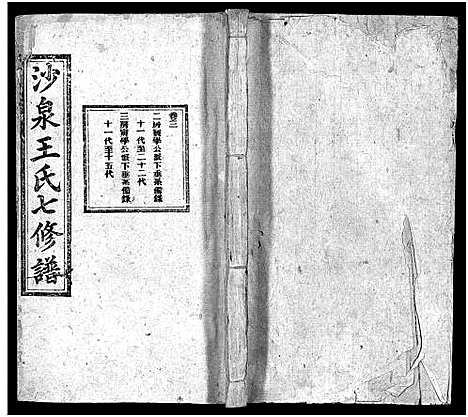 沙泉王氏七修譜
卷三
二房 學公派下垂系備錄
十一代至二十二代
三房 學公派下垂系備錄
十一代至十五代